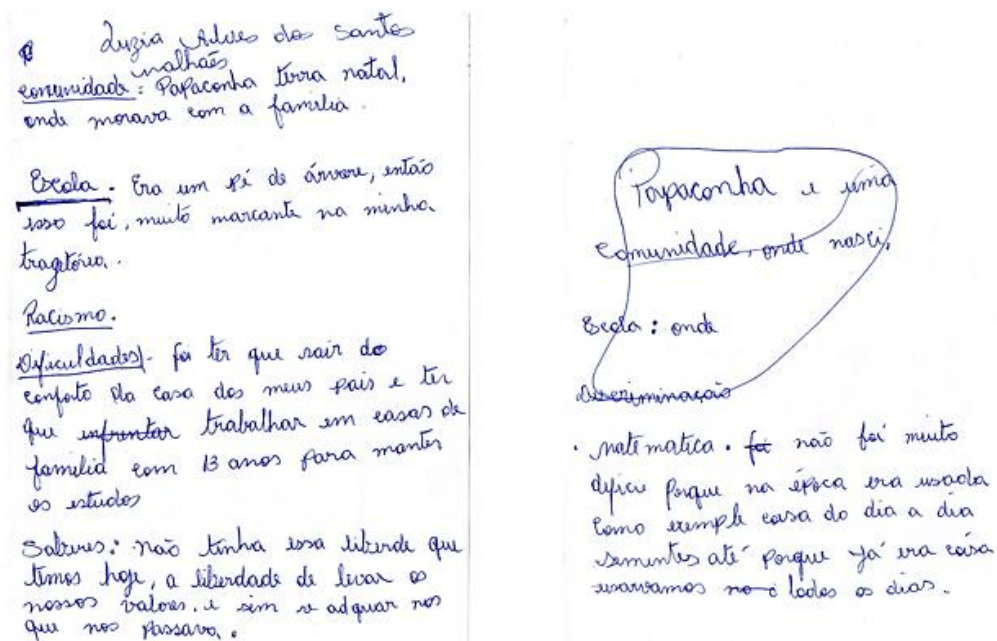 Luzia Alves dos Santos
malhães
comunidade: Papaconha terra natal,
onde morava com a familia.
Escola. Era um pé de árvore, então
isso foi, muito marcante na minha
tragetória.
Racismo.
Dificuldades - foi ter que sair do
conforto da casa dos meus pais e ter
que enfrentar trabalhar em casas de
familia com 13 anos para mantes
os estudos
Saberes: não tinha essa liberde que
temos hoje, a liberdade de levar os
nossos valores. e sim se adquar nos
que nos passava.
Papaconha e uma
comunidade, onde nasci,
Escola: onde
Discriminação
. matematica. foi não foi muito
dificu porque na época era usada
como exemple coisa do dia a dia
sementes até porque já era coisa
usavamos todos os dias.